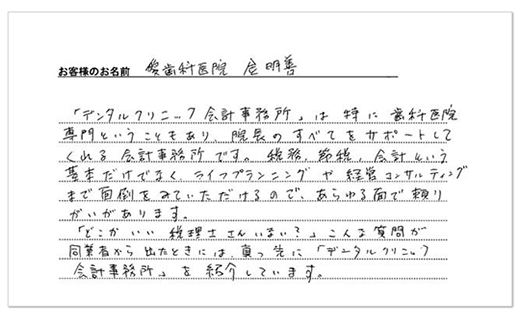 お客様のお名前 愛歯科医院 金明善
「デンタルクリニック会計事務所」は特に歯科医院
専門ということもあり、院長のすべてをサポートして
くれる会計事務所です。税務、節税、会計という
基本だけでなく、ライフプランニングや経営コンサルティング
まで面倒をみていただけるので、あらゆる面で頼り
がいがあります。
「どこかいい税理士さんいない?」こんな質問が
同業者から出たときには、真っ先に「デンタルクリニック
会計事務所」を紹介しています。